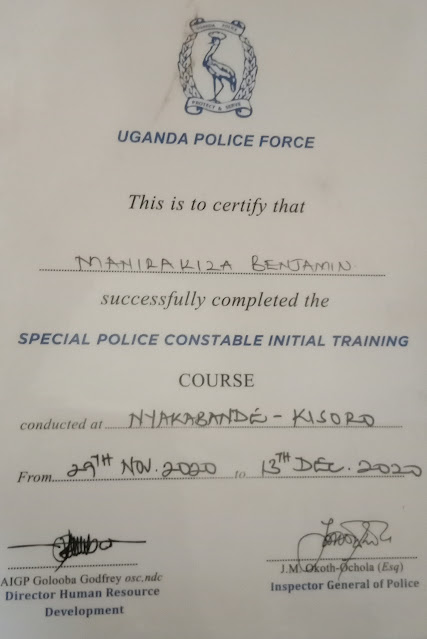 PROTECT & SERVE
UGANDA POLICE FORCE
This is to certify that
MANIRAKIZA BENJAMIN
successfully completed the
SPECIAL POLICE CONSTABLE INITIAL TRAINING
COURSE
conducted at NYAKABANDE - KISORO
From 29TH NOV. 2020 to 13TH DEC. 2020
AIGP Golooba Godfrey osc,ndc
Director Human Resource
Development
J.M. Okoth-Ochola (Esq)
Inspector General of Police